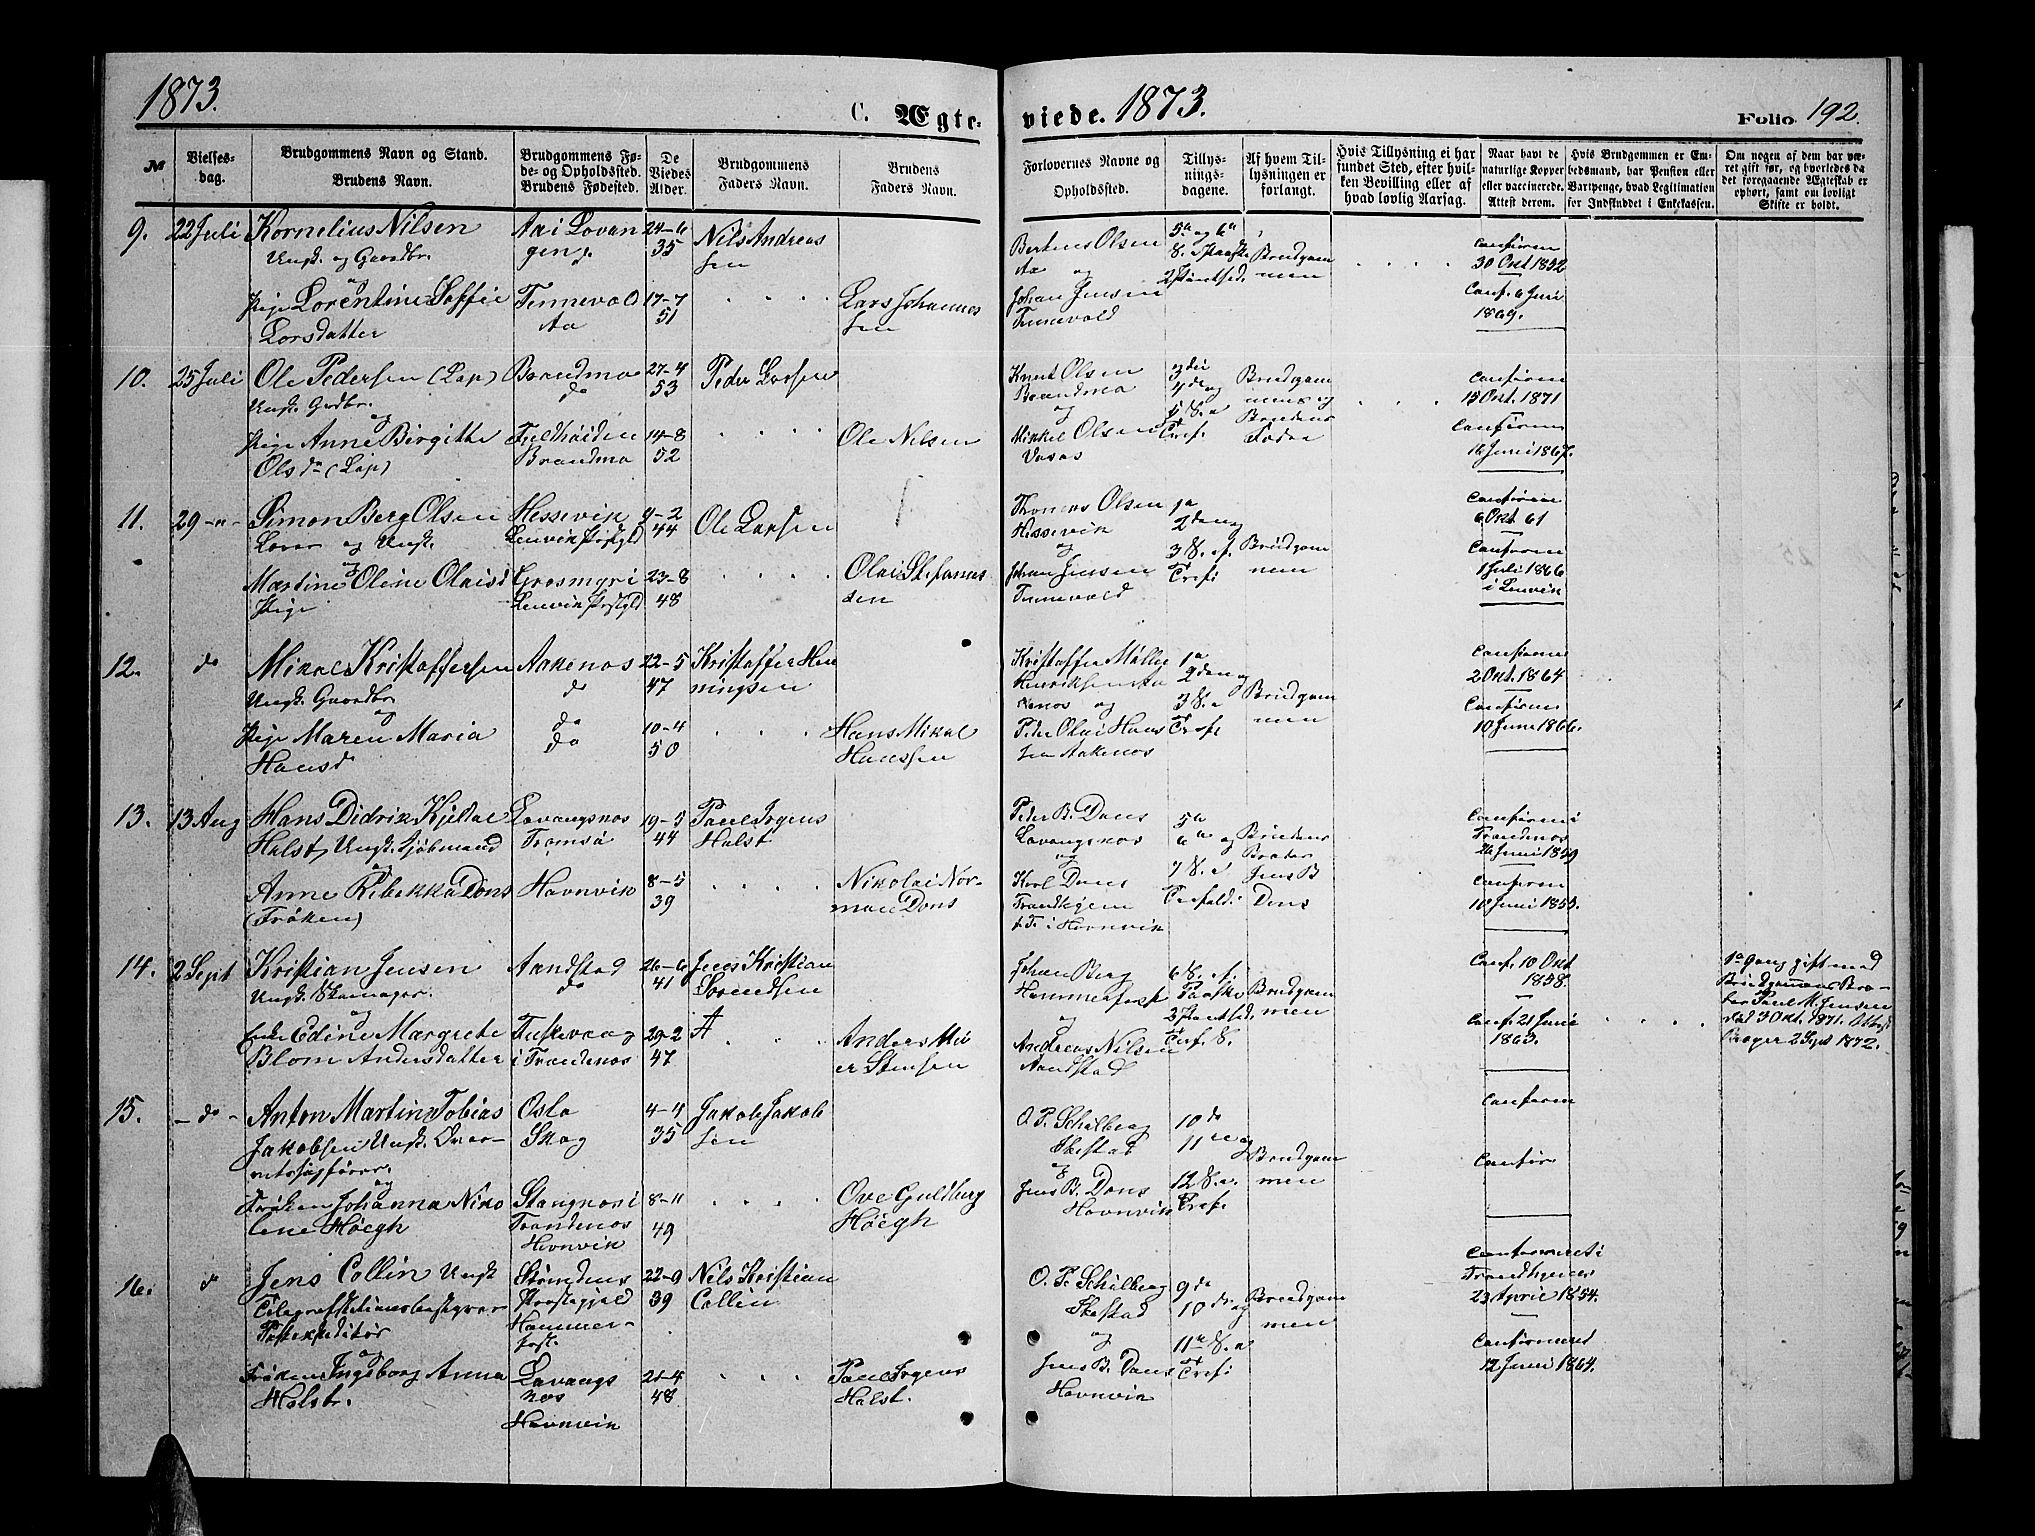 1873.
C. Ægte-
viede. 1873.
Folio 192.
№
Vielses-
dag.
Brudgommens Navn og Stand.
Brudens Navn.
Brudgommens Fø-
de- og Opholdssted.
Brudens Fødested.
De
Viedes
Alder.
Brudgommens
Faders Navn.
Brudens
Faders Navn.
Forlovernes Navne og
Opholdssted.
Tillys-
nings-
dagene.
Af hvem Til-
lysningen er
forlangt.
Hvis Tillysning ei har
fundet Sted, efter hvil-
ken Bevilling eller af
hvad lovlig Aarsag.
Naar havt de
naturlige Kopper
eller vaccinerede.
Attest derom.
Hvis Brudgommen er Em-
bedsmand, har Pension eller
Vartpenge, hvad Legitimation
for Indskuddet i Enkekassen.
Om nogen af dem har væ-
ret gift før, og hvorledes da
det foregaaende Ægteskab er
ophørt, samt om lovligt
Skifte er holdt.
9. 22 Juli Kornelius Nilsen
Ungk. og Gaardbr.
og
Pige Lorentine Soffie
Larsdatter
Aa i Lavan
gen
Tennevol
Aa
24-6
35
17-7
51
Nils Andreas
sen
Lars Johannes
sen
Bertens Olsen
Aa og
Johan Jensen
Tennevold
5te og 6te
Brudgom
men
Confirm
30 Okt 1852
Conf. 6 Juni
1869.
10. 25 Juli Ole Pedersen (Lap)
Ungk. Grdbr.
og
Pige Anne Birgitte
Ols dr (Lap)
Brandmo
do
Fjeldhøiden
Brandmo
27-4
53
14-8
52
Peder Larsen
Ole Nilsen
Knut Olsen
Brandmo
og
Mikkel Olsen
Vasas
3die
4de og
5 S. e
Tref.
Brudgom
men og
Brudens
Fader
Confirm
15 Okt. 1871
Confirm
16 Juni 1867.
11. 29 -"- Simon Berg Olsen
og Ungk.
og
Martine Oline Olaisd
Pige
Hessevik
Lenvik Prstgld
Grasmyr i
Lenvik Prstgld
9-2
44
23-8
48
Ole Larsen
Olai Stefanus
sen
Thomas Olsen
Hessevik
og
Johan Jensen
Tennevold
1ste
2den og
3 S. ef.
Tref.
Brudgom
men
Confirm
6 Okt 61
Confirm
1 Juli 1866
i Lenvik
12. do Mikal Kristoffersen
Ungk. Gaardbr.
og
Pige Maren Maria
Hansd
Aakenes
do
do
do
22-5
47
10-4
50
Kristoffer Hen
ningsen
Hans Mikal
Hanssen
Kristoffer Møller
Henriksen Aa
kenes og
Peder Olai Hans
sen Aakenes
1ste
2den og
3 S. e
Tref.
Brudgom
men
Confirm
2 Okt. 1864
Confirm
10 Juni 1866.
13. 13 Aug Hans Didrik Kjeldal
Holst, Ungk. Sjømand
og
Anne Rebekka Dons
(Frøken)
Lavangsnes
Tromsø
Havnvik
19-5
44
8-5
39
Paul Irgens
Holst
Nikolai Nor-
man Dons
Peder B. Dons
Lavangsnes
og
Karl Dons
Trondhjem
p. T. i Havnvik
5te
6te og
7 S. e
Trefold.
Brudens
Broder
Jens B
Dons
Confirm i
Trondenes
26 Juni 1859
Confirm
10 Juni 1853.
14. 2 Sept Kristian Jensen
Ungk. Skomager.
og
Enke Edine Margrete
Blom Andersdatter
Aandstad
do
Tuskevaag
i Trondenes
26-6
41
29-2
47
Jens Kristian
Sorendsen
Anders Mei
er Stensen
Johan Berg
Hammerfest
og
Andreas Nilsen
Aandstad
6 S. ef.
Paaske
Tref. S.
Brudgom
men.
Conf. 10 Okt
1858.
Conf. 21 Juni
1863.
1ste gang gift med
Brudgommens Bro-
der Paul M. Jensen
død 3 Okt. 1871. Attest
2 Sept 1872.
15. - do - Anton Martin Tobias
Jakobsen Ungk. Over-
retssagfører.
og
Frøken Johanna Niko
line Höegh
Oslo
Skog
Stangnes i
Trondenes
Havnvik
4-4
35
8-11
49
Jakob Jakob
sen
Ove Guldberg
Höegh
O. P. Schølberg
Skestad
og
Jens B. Dons
Havnvik
10de
11te og
12 S. e.
Tref.
Brudgom
men
Confirm
Confir
16. do Jens Collin Ungk
Telegrafstationsbestyrer
Postexpeditør
og
Frøken Ingeborg Anna
Holst.
Prestegjeld
Hammer-
fest.
Lavangs
nes
Havnvik
22-9
39
21-4
48
Nils Kristian
Collin
Paul Irgens
Holst.
O. P. Schølberg
Skestad
og
Jens B. Dons
Havnvik
9de
10de og
11te S. e
Tref.
Brudgom
men
Confirmeret i
Trondhjem
23 April 1854.
Confirmeret
12 Juni 1864.